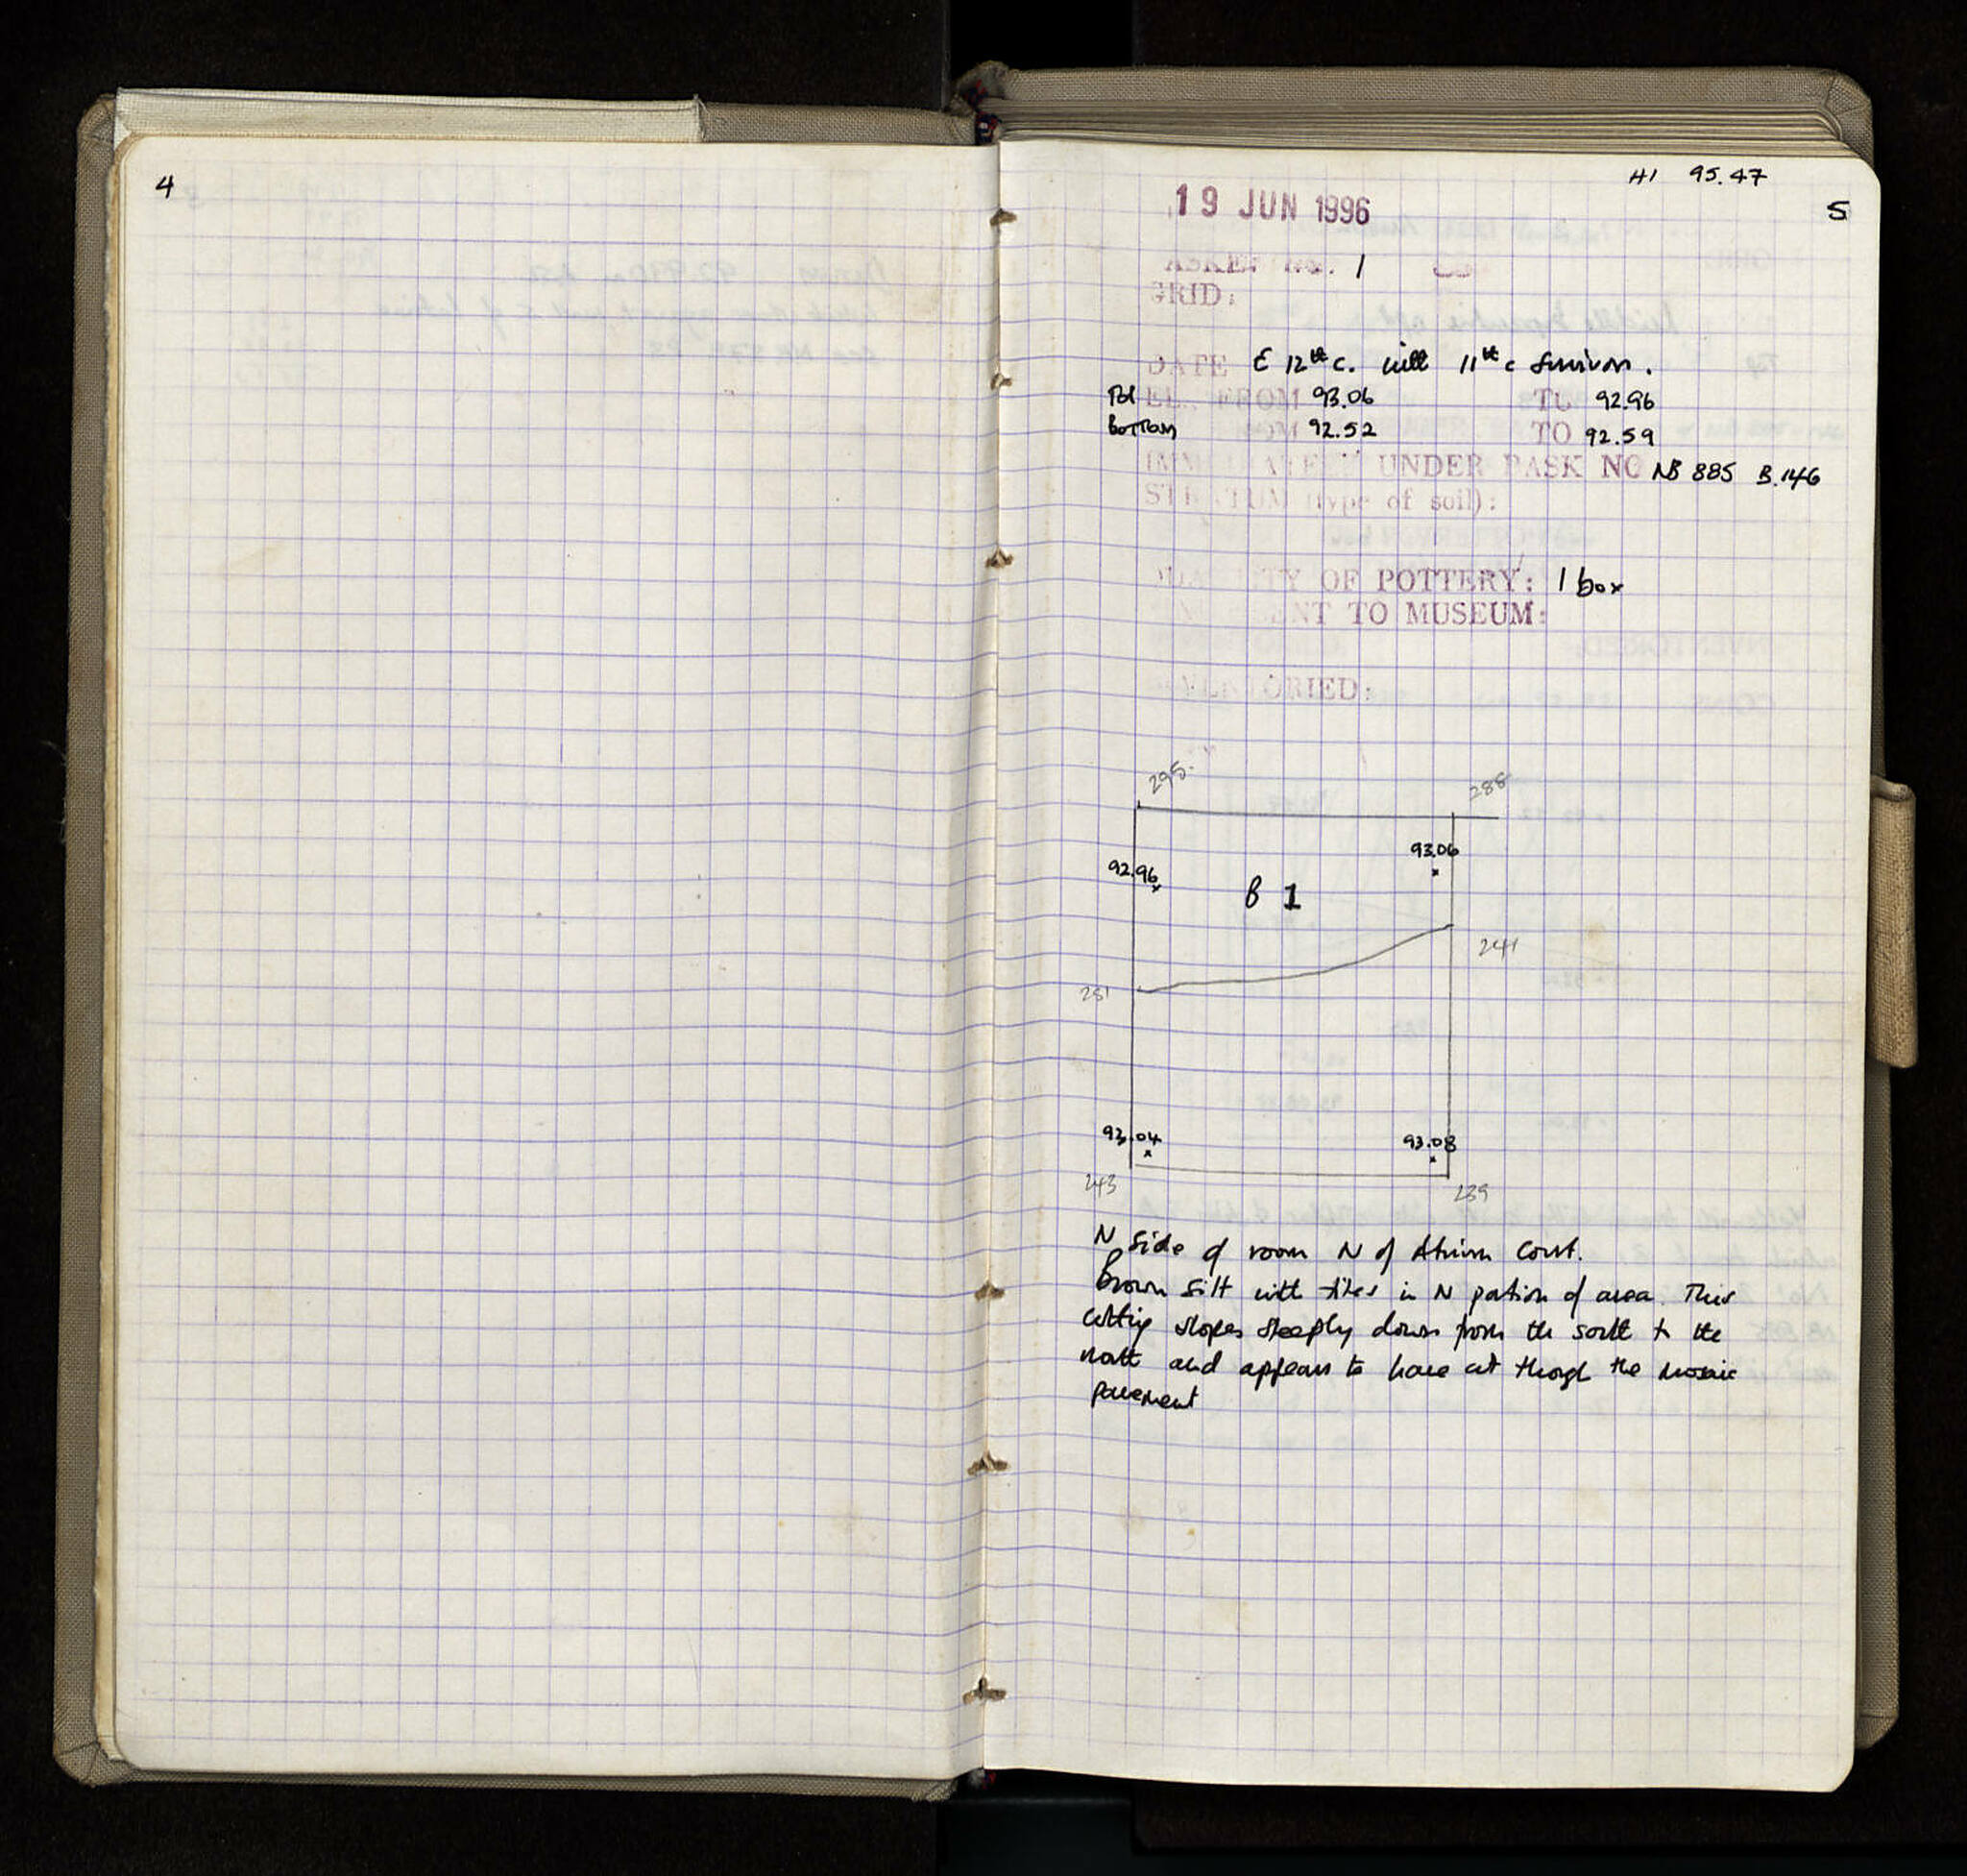 4
HI 95.47
5
19 JUN 1996
ASKE No. 1
GRID:
DATE E 12th C. with 11th c Survivors.
Top EL. FROM 93.06 TO 92.96
Bottom OM 92.52 TO 92.59
IMM ATE UNDER BASK NO NB 885 B.146
ST TUM (type of soil):
QUA ITY OF POTTERY: 1 box
ENT TO MUSEUM:
INVENTORIED:
295
288
93.06
92.96
B 1
241
251
93.04
93.08
243
239
N Side of room N of Atrium Court.
Brown silt with tiles in N portion of area. This
cutting slopes steeply down from the south to the
north and appears to have cut through the mosaic
pavement